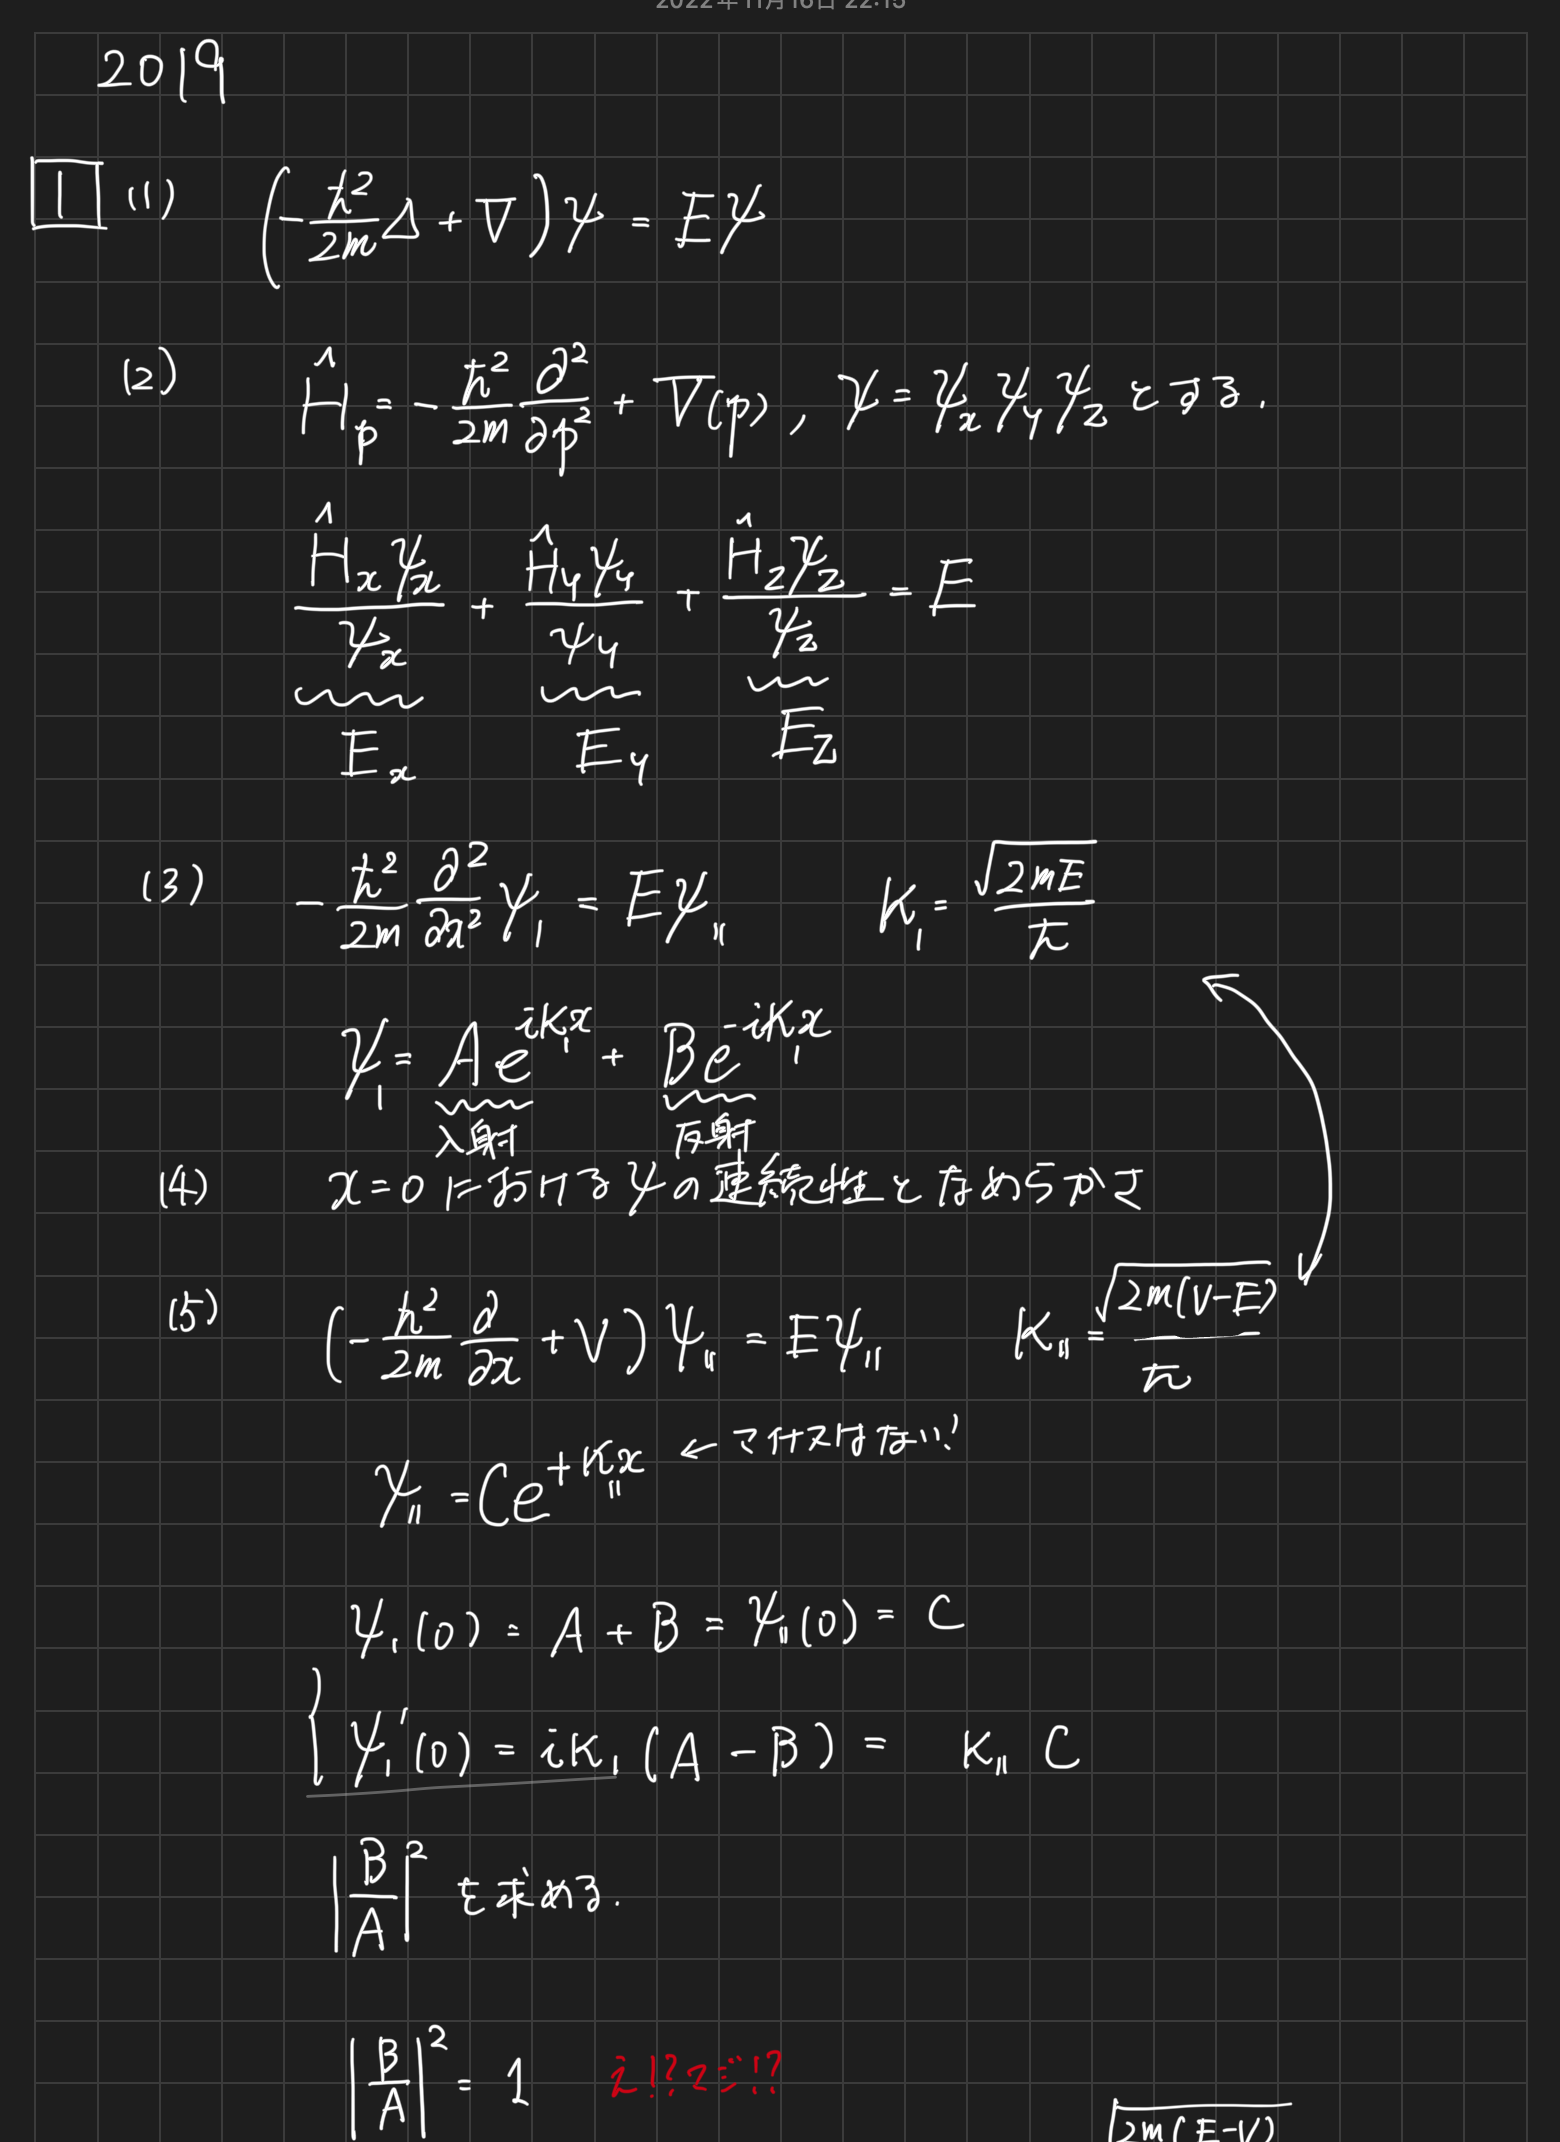 2022年11月16日 22:15
2019
1 (1) (-ħ²/2m Δ + V)ψ = Eψ
(2) Ĥp = -ħ²/2m ∂²/∂p² + V(p), ψ = ψxψyψz とする.
Ĥxψx/ψx + Ĥyψy/ψy + Ĥzψz/ψz = E
Ex Ey Ez
(3) -ħ²/2m ∂²/∂x² ψ_I = Eψ_II K_I = √2mE/ħ
ψ_I = Ae^{iK_I x} + Be^{-iK_I x}
入射 反射
(4) x=0 におけるψの連続性となめらかさ
(5) (-ħ²/2m ∂/∂x + V)ψ_II = Eψ_II K_II = √2m(V-E)/ħ
ψ_II = Ce^{+K_II x} ← マイナスはない!
ψ_I(0) = A + B = ψ_II(0) = C
ψ_I'(0) = iK_I(A - B) = K_II C
|B/A|² を求める.
|B/A|² = 1 え!?マジ!?
√2m(E-V)